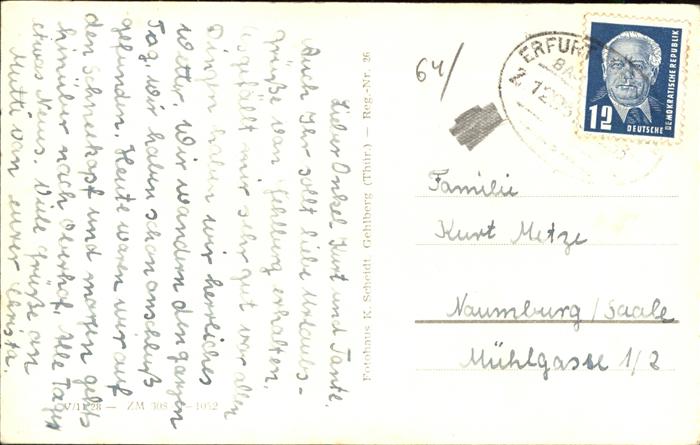 Lieber Onkel Kurt und Tante.
Auch Ihr sollt liebe Urlaubs-
grüße von Gehlberg erhalten.
Es gefällt mir sehr gut vor allen
Dingen haben wir herrliches
Wetter. Wir wandern den ganzen
Tag, wir haben schon anschluß
gefunden. Heute waren wir auf
den Schneekopf und morgen gehts
hinüber nach Oberhof. Alle Tage
etwas Neues. Viele grüße an
Mutti von eurer Christa.
V/11/28 — ZM 308 —1052
Fotohaus K. Scheidt, Gehlberg (Thür.) — Reg.-Nr. 26
64/
ERFURT
12
DEUTSCHE
DEMOKRATISCHE REPUBLIK
Familie
Kurt Metze
Naumburg/Saale
Mühlgasse 1/2